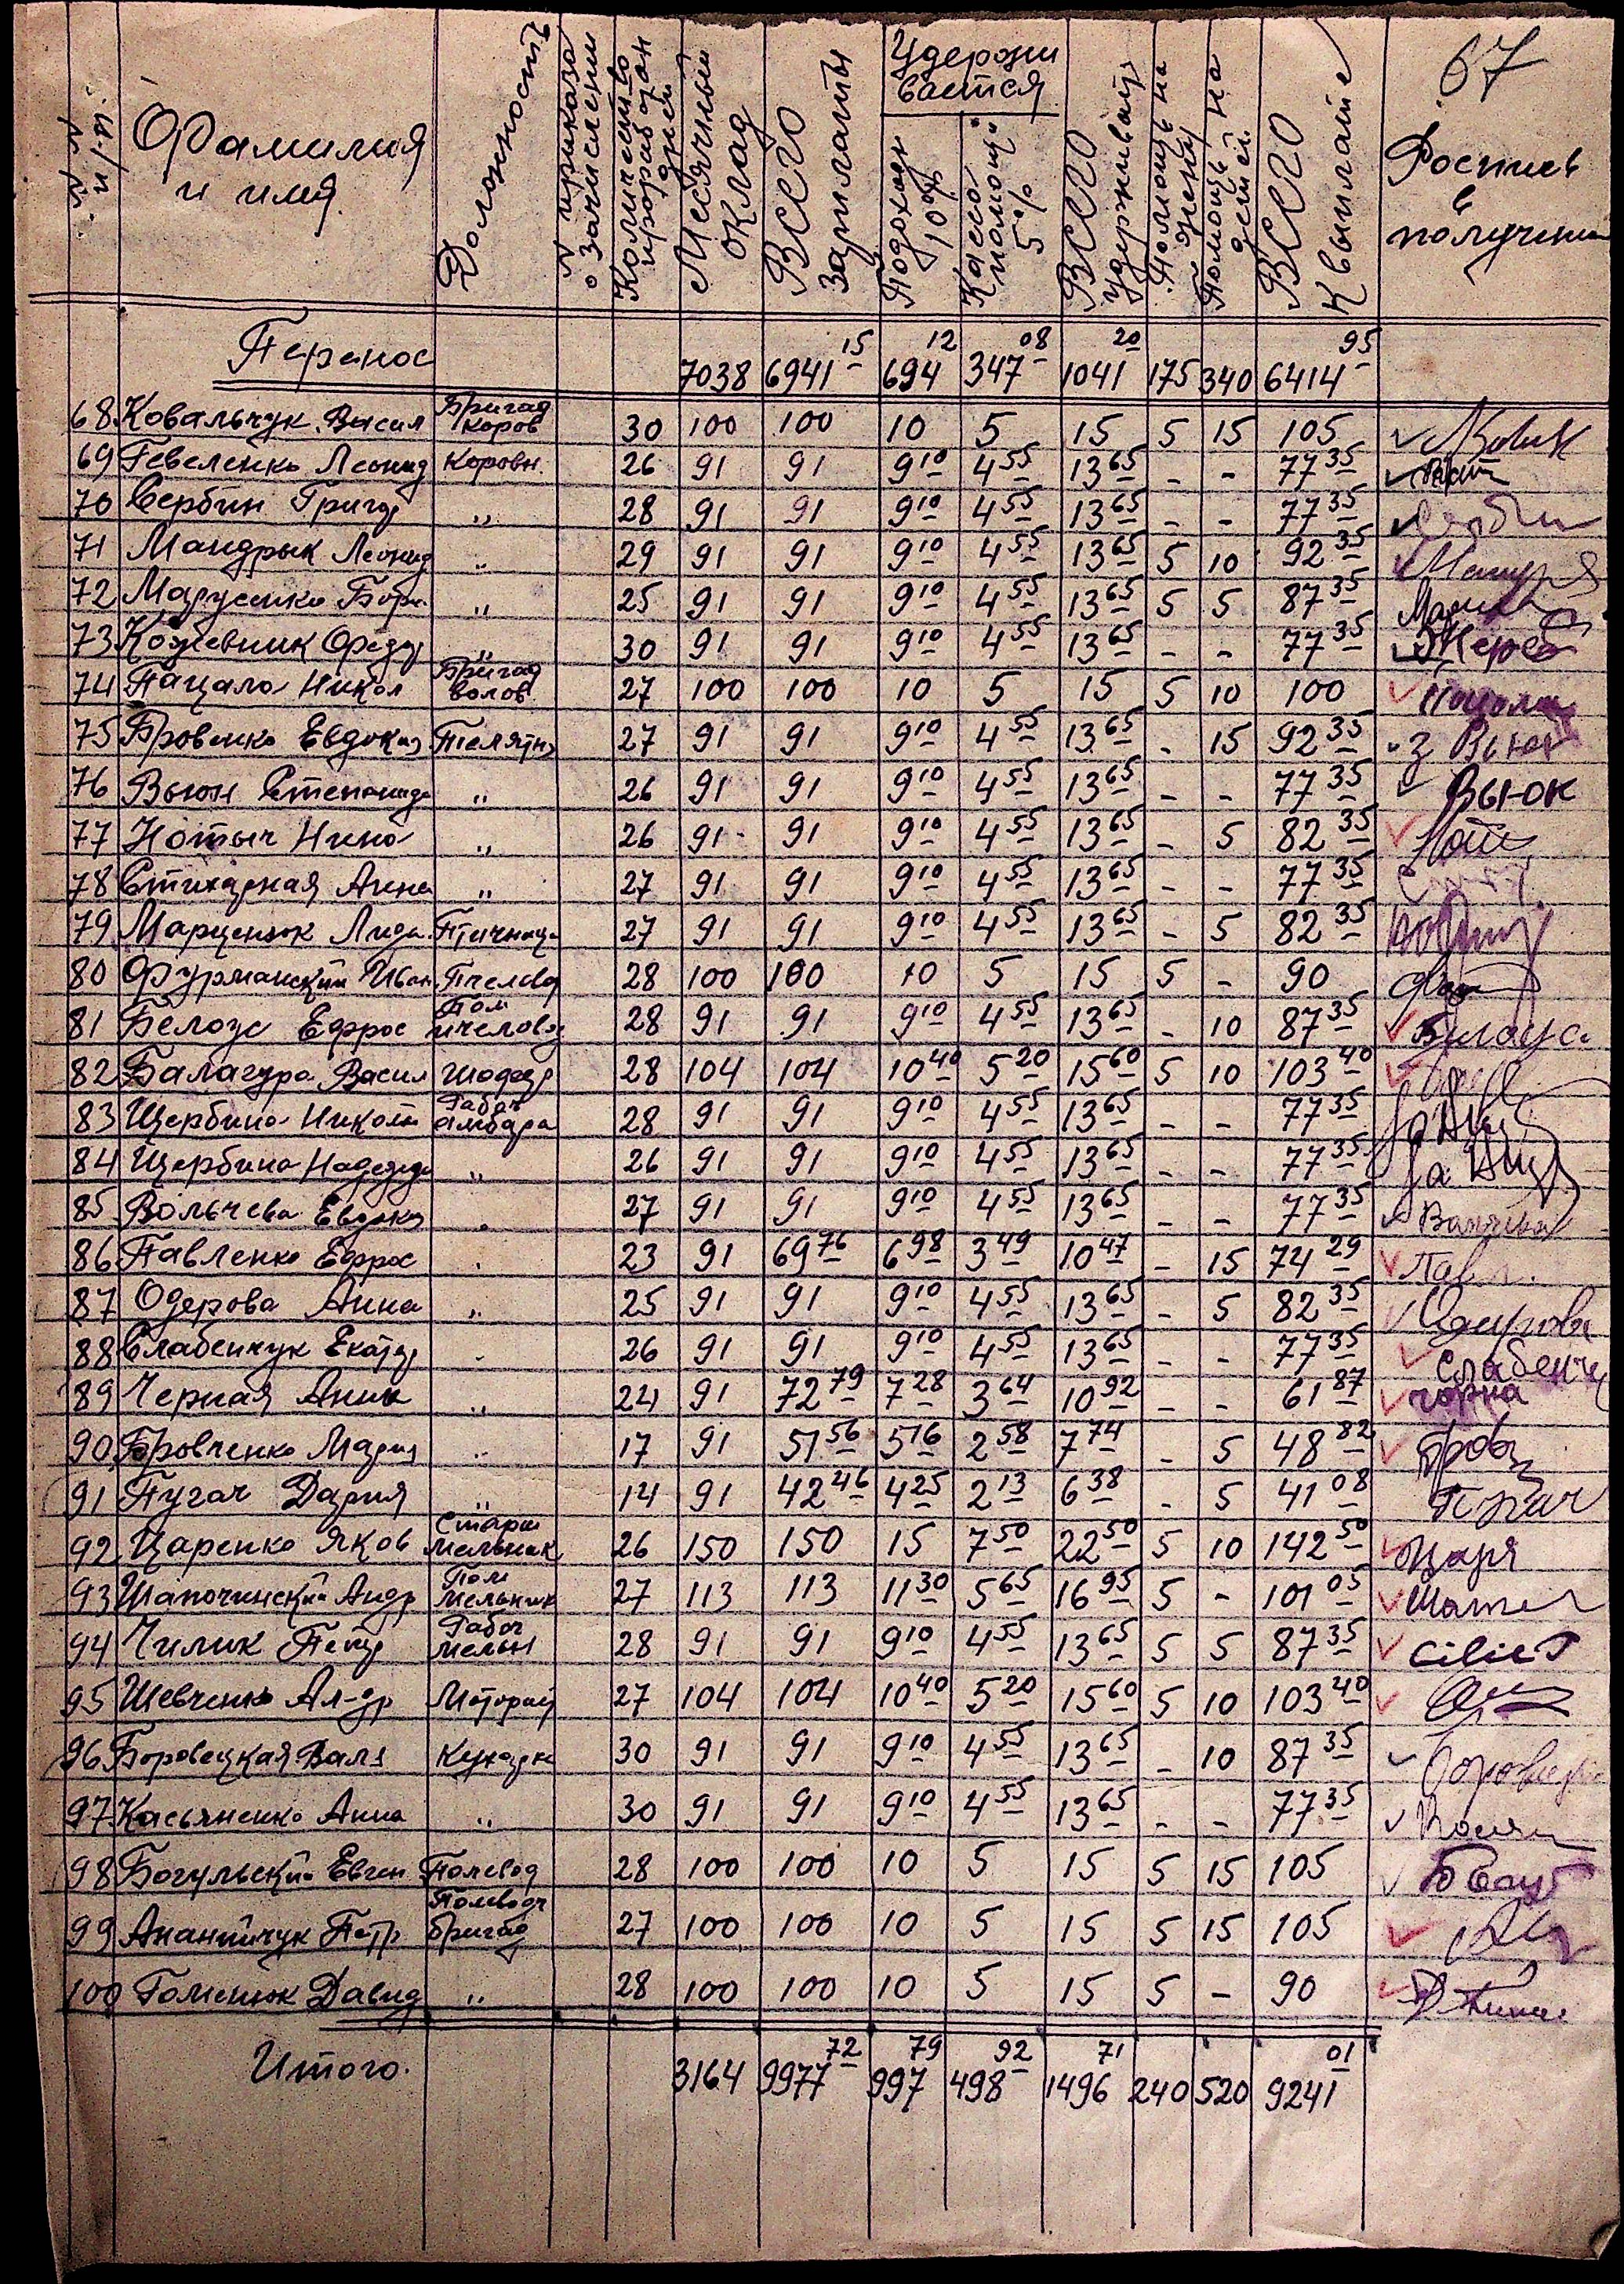 67
№№ п/п.
Фамилия и имя.
Должность
№ приказа о зачислении
Количество прораб дней
Месячный оклад
Всего зарплаты
Удержи вается
Подоходн 10%
Касса "помощи" 5%
Всего удерживаец
Помощь на жену
Помощь на детей
Всего к выплате
Роспись в получении
Перенос 7038 6941 15 694 12 347 08 1041 20 175 340 6414 95
68 Ковальчук Васил Бригад коров 30 100 100 10 5 15 5 15 105
69 Гевеленко Леонид Коровн. 26 91 91 9 10 4 55 13 65 - - 77 35
70 Сербин Григо „ 28 91 91 9 10 4 55 13 65 - - 77 35
71 Мандрык Леонид „ 29 91 91 9 10 4 55 13 65 5 10 92 35
72 Марусенко Борис. „ 25 91 91 9 10 4 55 13 65 5 5 87 35
73 Кожевник Федор „ 30 91 91 9 10 4 55 13 65 - - 77 35
74 Пацало Никол Бригад волов 27 100 100 10 5 15 5 10 100
75 Бровенко Евдокия Телятн 27 91 91 9 10 4 55 13 65 - 15 92 35
76 Вьюн Степанида „ 26 91 91 9 10 4 55 13 65 - - 77 35 Вьюн
77 Нотыч Нина „ 26 91 91 9 10 4 55 13 65 - 5 82 35
78 Стихарная Анна „ 27 91 91 9 10 4 55 13 65 - - 77 35
79 Марценюк Лида Птичница 27 91 91 9 10 4 55 13 65 - 5 82 35
80 Фурманский Иван Пчеловод 28 100 100 10 5 15 5 - 90
81 Белоус Ефрос Пом пчеловод 28 91 91 9 10 4 55 13 65 - 10 87 35 Билоус.
82 Балагура Васил Шофер 28 104 104 10 40 5 20 15 60 5 10 103 40
83 Щербина Никол Рабоч амбара 28 91 91 9 10 4 55 13 65 - - 77 35
84 Щербина Надежда „ 26 91 91 9 10 4 55 13 65 - - 77 35
85 Вольчева Евдокия „ 27 91 91 9 10 4 55 13 65 - - 77 35
86 Павленко Ефрос „ 23 91 69 76 6 98 3 49 10 47 - 15 74 29
87 Одерова Анна „ 25 91 91 9 10 4 55 13 65 - 5 82 35
88 Слабенчук Екатер „ 26 91 91 9 10 4 55 13 65 - - 77 35 Слабенчу
89 Черная Анна „ 24 91 72 79 7 28 3 64 10 92 - - 61 87 чорна
90 Бровченко Мария „ 17 91 51 56 5 16 2 58 7 74 - 5 48 82
91 Пугач Дария „ 14 91 42 46 4 25 2 13 6 38 - 5 41 08
92 Царенко Яков Старш мельник 26 150 150 15 7 50 22 50 5 10 142 50 Царя
93 Шапочинский Андр Пом мельник 27 113 113 11 30 5 65 16 95 5 - 101 05
94 Чилик Петр Рабоч мельн 28 91 91 9 10 4 55 13 65 5 5 87 35
95 Шевченко Ал-др Моторист 27 104 104 10 40 5 20 15 60 5 10 103 40
96 Боровецкая Валя Кухарка 30 91 91 9 10 4 55 13 65 - 10 87 35
97 Касьяненко Анна „ 30 91 91 9 10 4 55 13 65 - - 77 35
98 Богульский Евген Полевод 28 100 100 10 5 15 5 15 105
99 Ананийчук Петр Полеводч бригад 27 100 100 10 5 15 5 15 105
100 Гоменюк Давид „ 28 100 100 10 5 15 5 - 90
Итого. 3164 9977 72 997 79 498 92 1496 71 240 520 9241 01